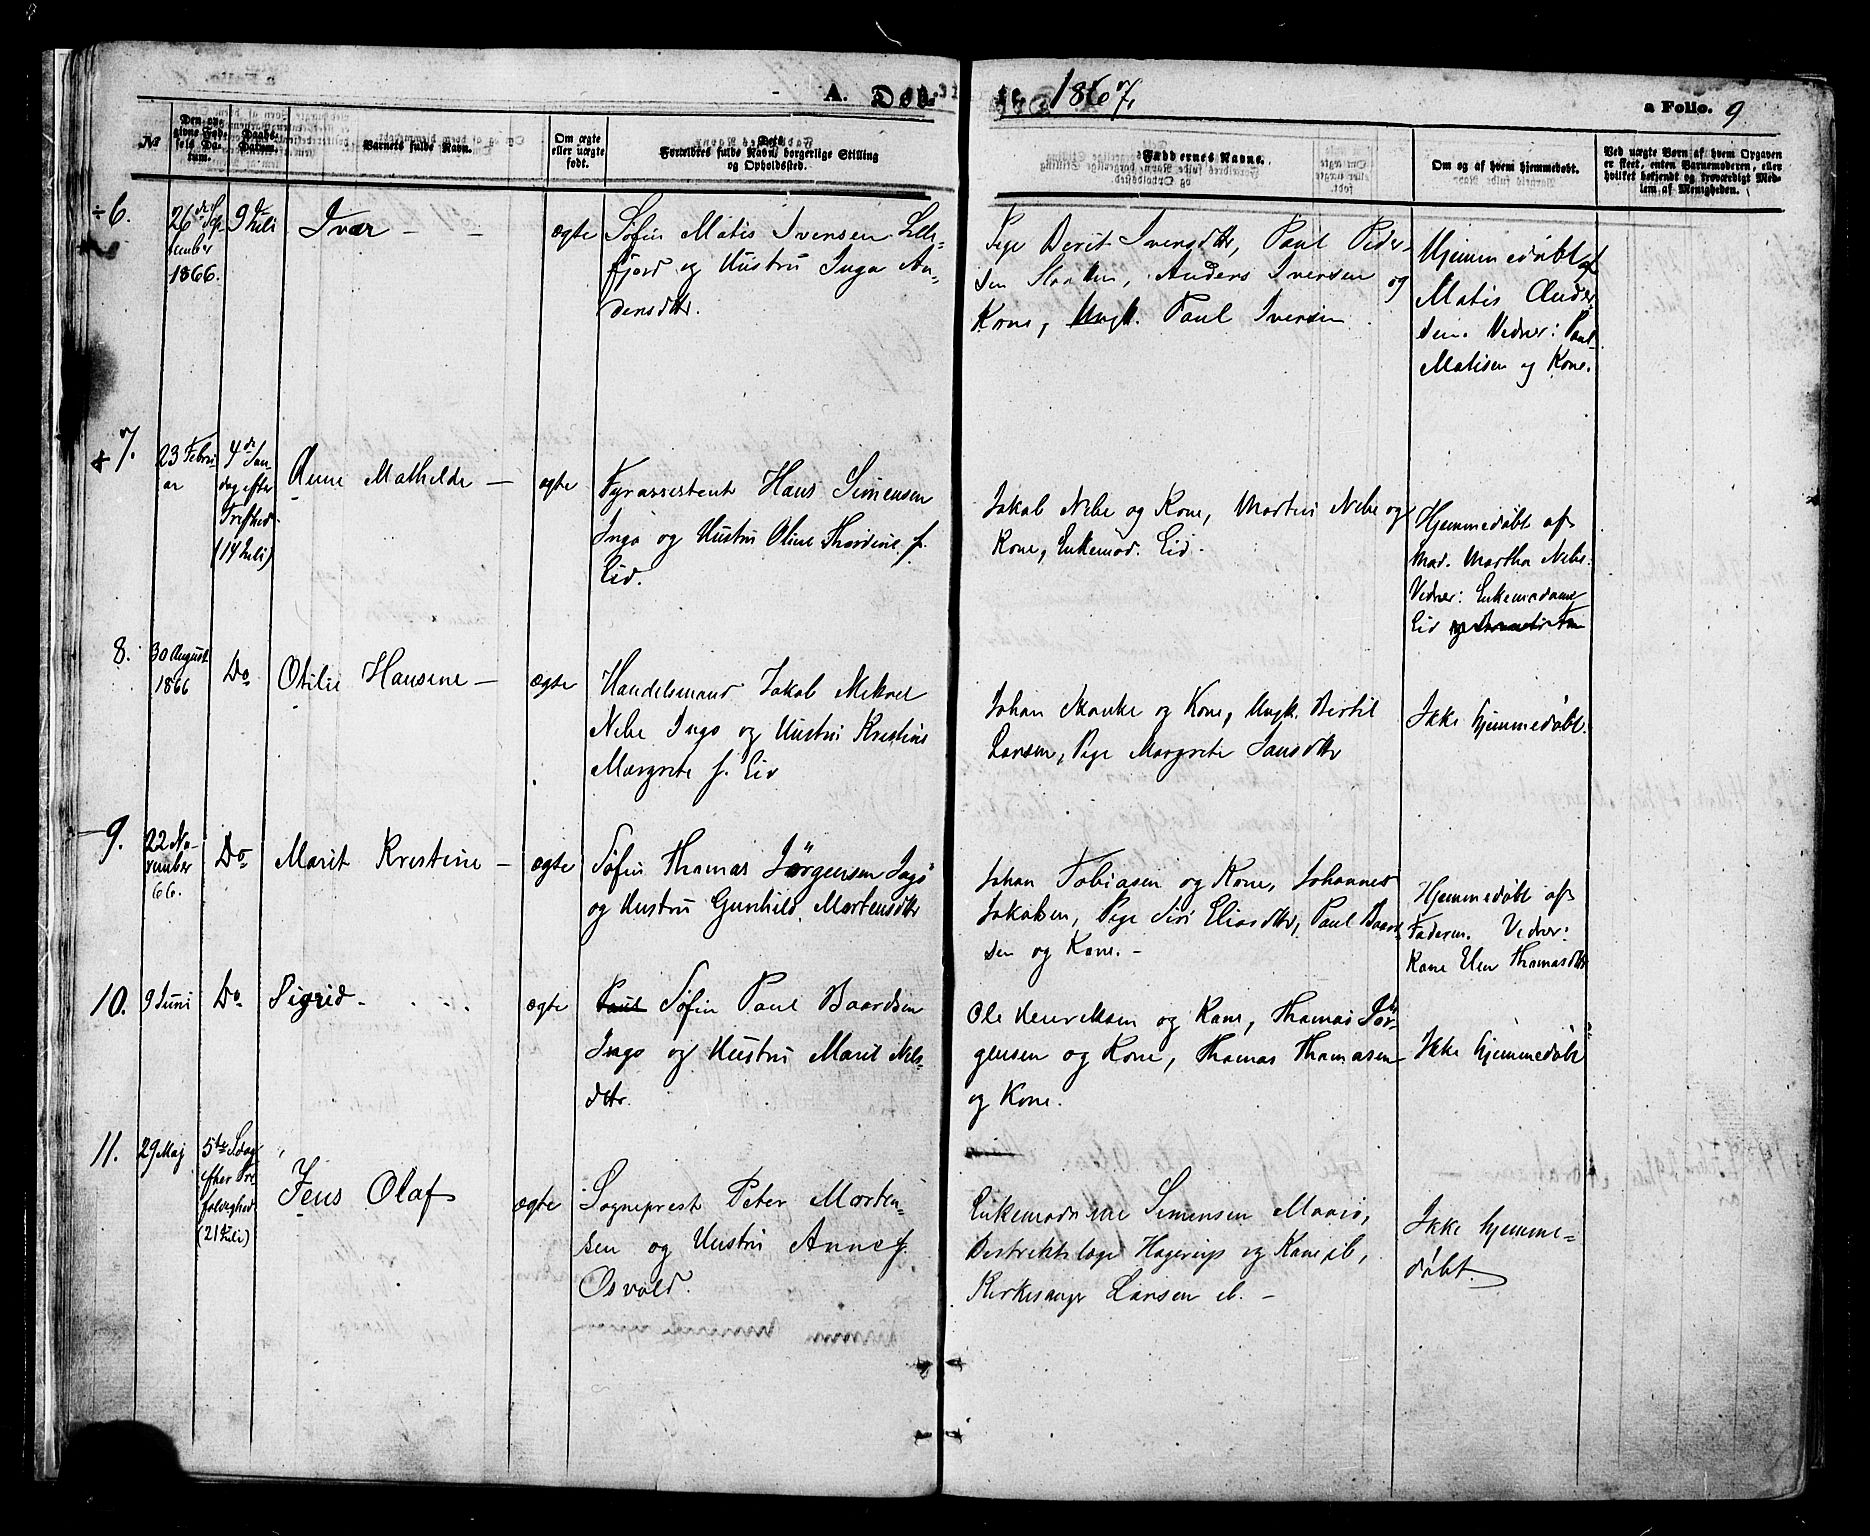 A. Døb
te 1867.
a Folio. 9
№
Den an-
givne Fød-
sels Da-
tum.
Daabs-
Datum.
Barnets fulde Navn.
Om ægte
eller uægte
født.
Forældres fulde Navn, borgerlige Stilling
og Opholdssted.
Faddernes Navne.
Om og af hvem hjemmedøbt.
Ved uægte Børn af hvem Opgaven
er skeet, enten Barnemoderen, eller
hvilket bekjendt og troværdigt Med-
lem af Menigheden.
÷6.
26de Sep
tember
1866.
9 Juli
Ivar - -
ægte
Søfin Matis Iversen Lille
fjord og Hustru Inga An-
dersdtr.
Pige Berit Iversdtr, Paul Peder-
sen Slotten, Anders Iversen og
Kone, Ungk. Paul Iversen
Hjemmedøbt af
Matis Ander
sen. Vidner: Paul
Matisen og Kone.
7.
23 Febru
ar
4de Søn-
dag efter
Trefhed.
(14 Juli)
Anne Mathilde -
ægte
Fyrassistent Hans Simensen
Ingø og Hustru Oline Thordine f.
Eid.
Jakob Nebe og Kone, Martin Nebe og
Kone, Enkemad. Eid.
Hjemmedøbt af
Mad. Martha Nebe.
Vidner: Enkemadame
Eid
8.
30 August
1866
Do
Otilie Hansine -
ægte
Handelsmand Jakob Mikael
Nebe Ingø og Hustru Kristine
Margrete f. Eid
Johan Manke og Kone, Ungk. Bertil
Larsen, Pige Margrete Jansdtr
Ikke hjemmedøbt.
9.
22 No-
vember
66.
Do
Marit Kristine -
ægte
Søfin Thomas Jørgensen Ingø
og Hustru Gunhild Mortensdtr
Johan Tobiasen og Kone, Johannes
Jakobsen, Pige Siri Eliasdtr, Paul Baard
sen og Kone. -
Hjemmedøbt af
Faderen. Vidner:
Kone Elen Thomasdtr
10.
9 Juni
Do
Sigrid -
ægte
Paul Søfin Paul Baardsen
Ingø og Hustru Marit Nils-
dtr.
Ole Henriksen og Kone, Thomas Jør-
gensen og Kone, Thomas Thomasen
og Kone.
Ikke hjemmedøbt
11.
29 Maj
5te Sdag
efter Tre
foldighed
(21 Juli)
Jens Olaf
ægte
Sogneprest Peter Morten-
sen og Hustru Anne f.
Osvold.
Enkemadame Simensen Maasø,
Distriktslæge Hagerup og Kone ib,
Kirkesanger Larsen ib. -
Ikke hjemme-
døbt.